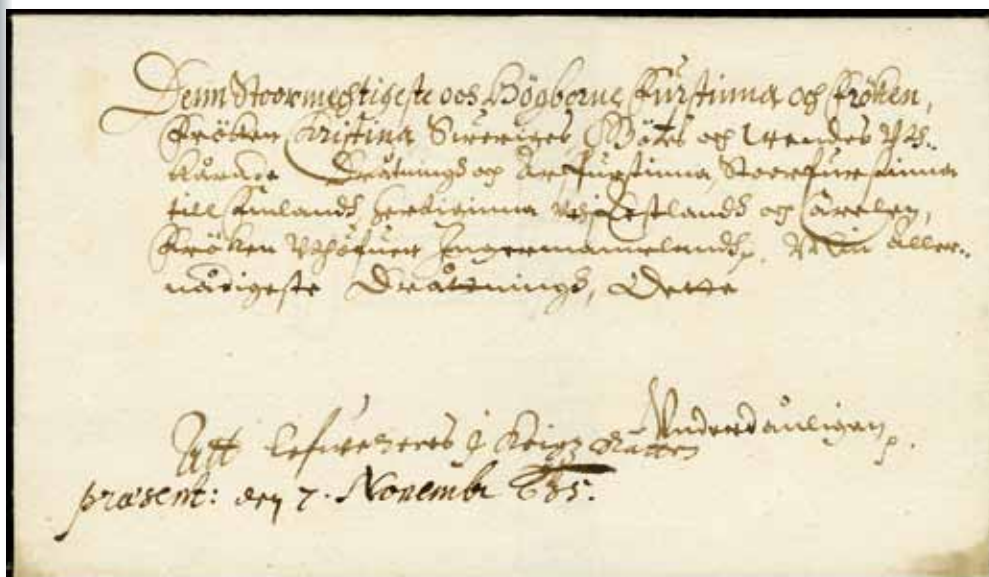 Denn Stoormechtigeste och Högborne Furstinna och Fröken,
Fröken Christina Sweriges Götes och Wendes Uth-
korade Drotningh och Arffurstinna, Stoorfurstinna
till Finlandh, Hertiginna uthi Estlandh och Carelen,
Fröken uthöfuer Ingermannelandh, Min Aller-
nådigeste Drottningh, Dette
Underdånligen
Att lefwereres i Krigz Rätten
præsent: den 7. Novembr 635.